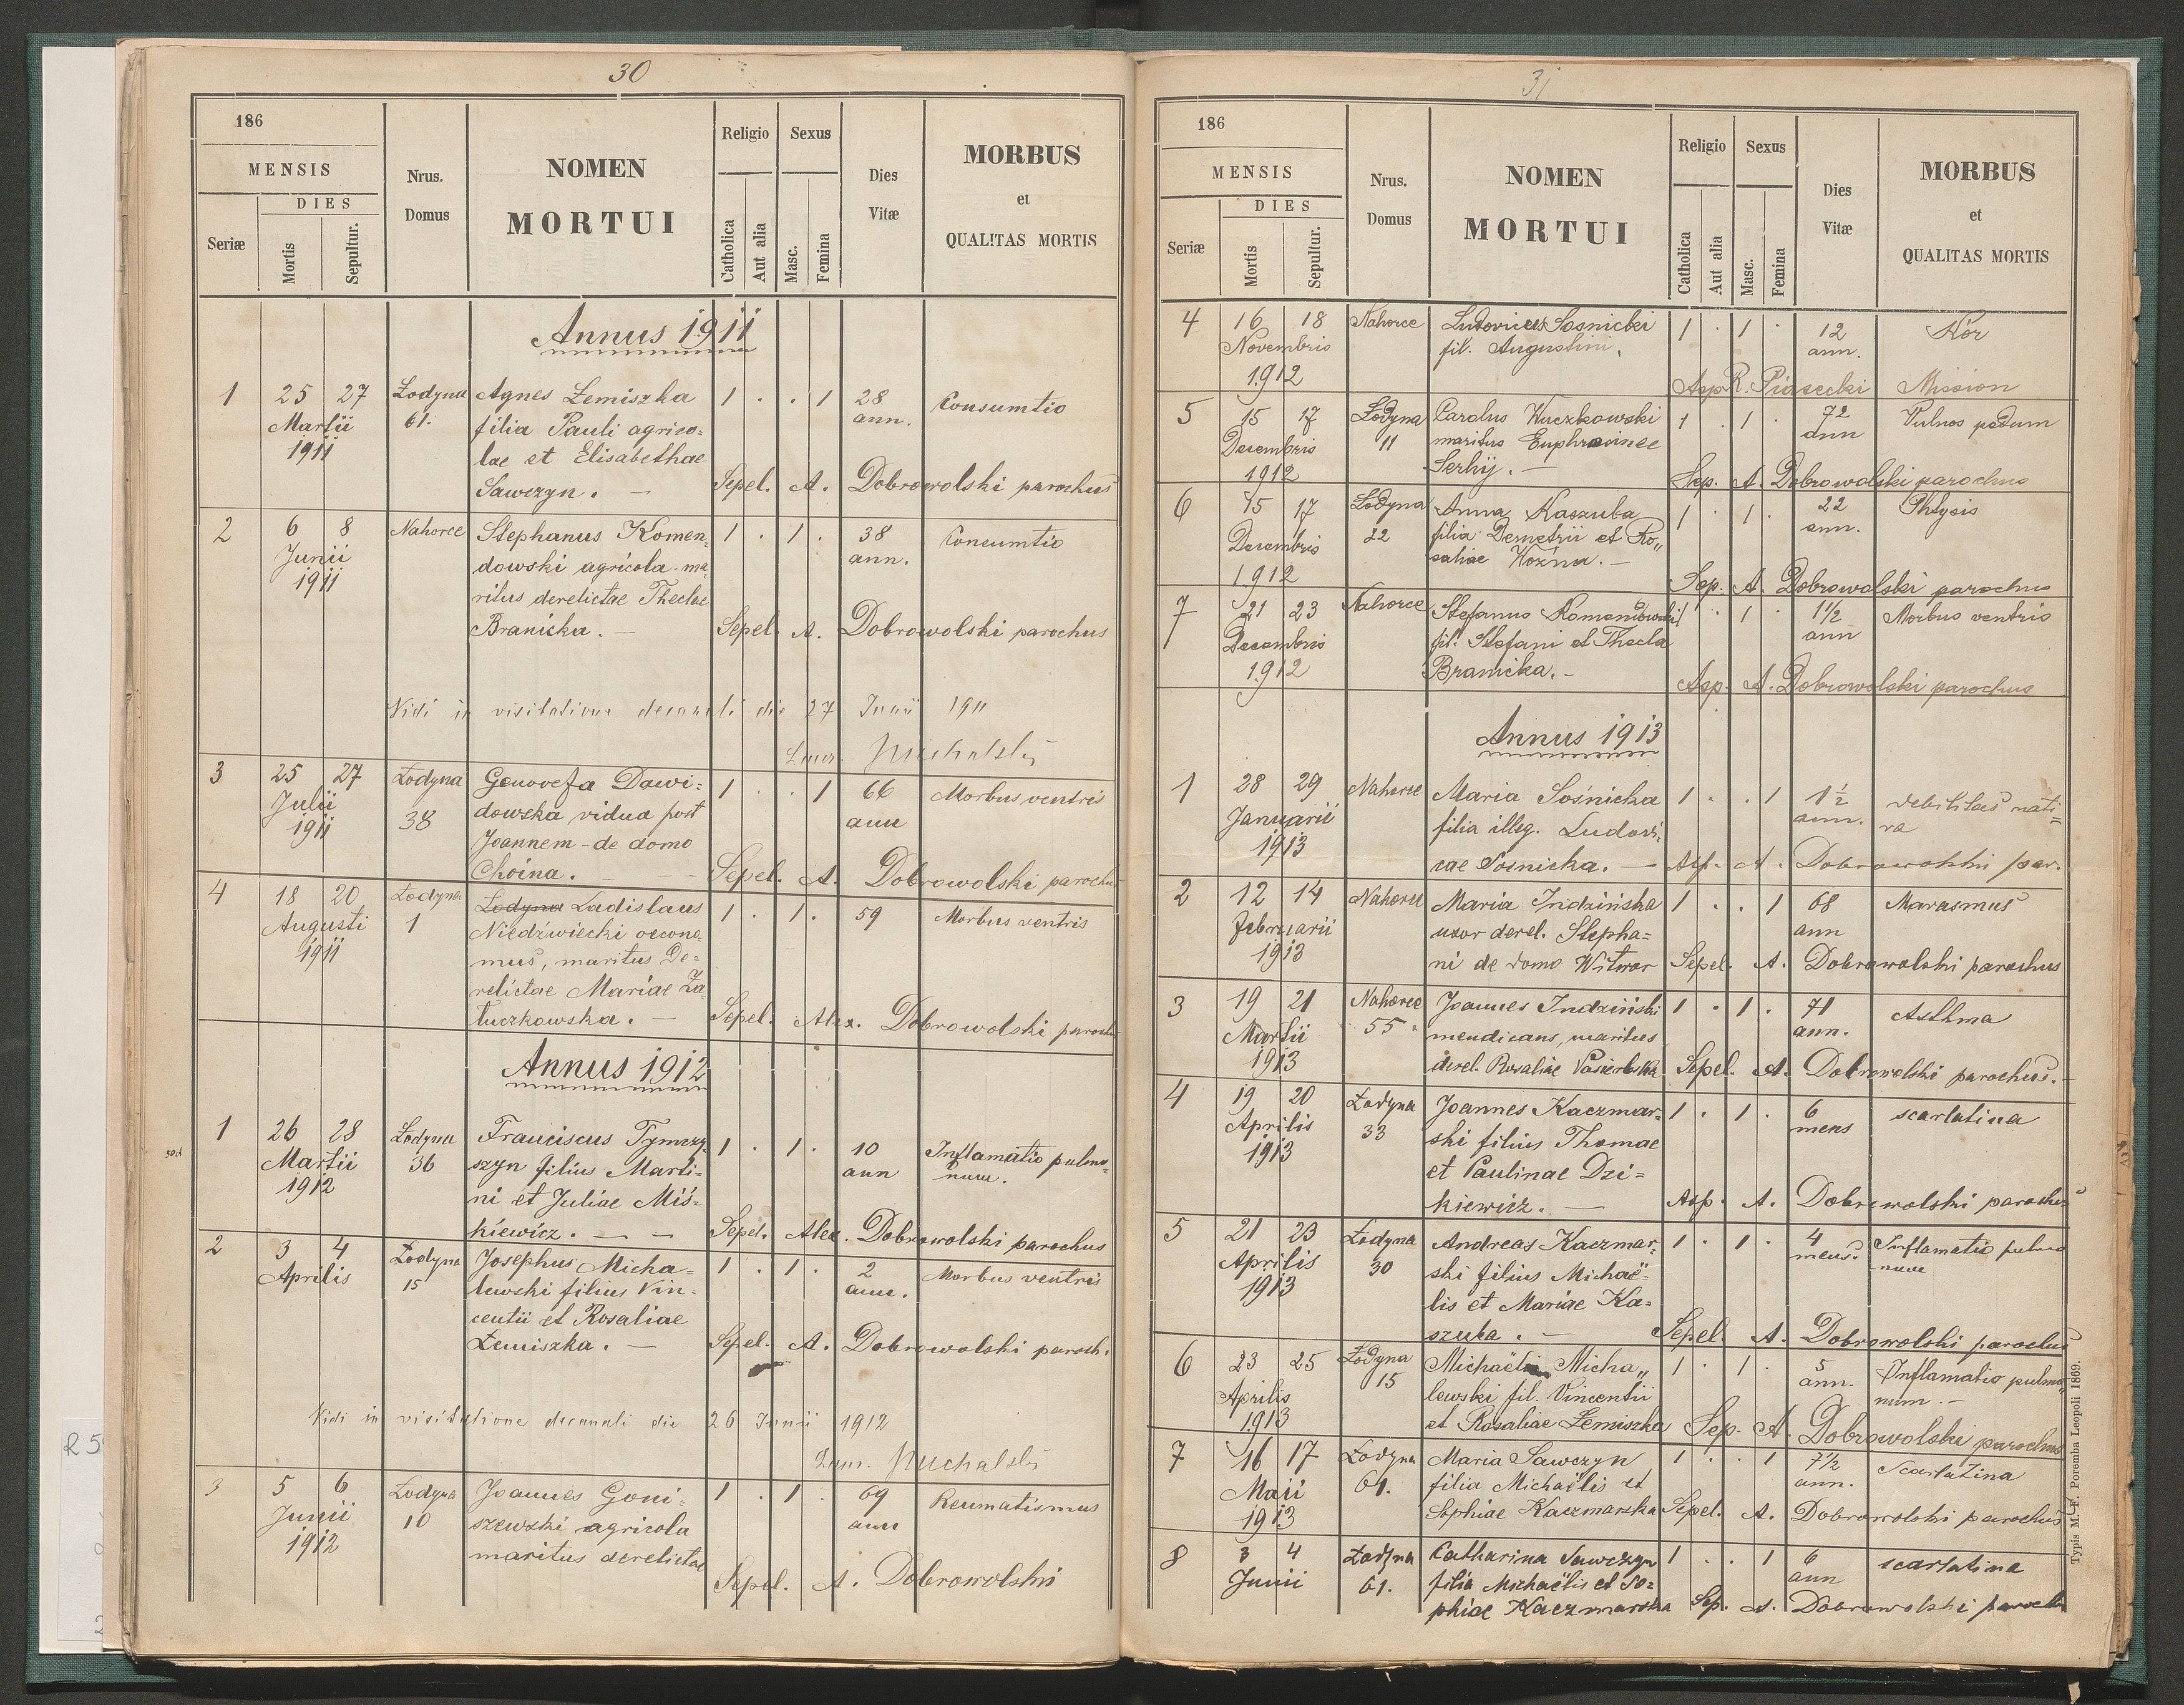 30
186
MENSIS
DIES
Seriæ
Mortis
Sepultur.
Nrus.
Domus
NOMEN
MORTUI
Religio
Catholica
Aut alia
Sexus
Masc.
Femina
Dies
Vitæ
MORBUS
et
QUALITAS MORTIS
Annus 1911
1 25 27 Łodyna Agnes Łemiszka 1 . . 1 28 Consumtio
Martii 61. filia Pauli agrico= ann.
1911 lae et Elisabethae
Sawczyn. — Sepel. A. Dobrowolski parochus
2 6 8 Nahorce Stephanus Komen= 1 . 1 . 38 Consumtio
Junii dowski agricola ma= ann.
1911 ritus derelictae Theclae
Branicka. — Sepel. A. Dobrowolski parochus
Vidi in visitatione decanali die 27 Junii 1911
Michalski
3 25 27 Łodyna Genovefa Dawi= 1 . . 1 66 Morbus ventris
Julii 38 dowska vidua post ann
1911 Joannem - de domo
Choina. — Sepel. A. Dobrowolski parochu
4 18 20 Łodyna Łodyna Ladislaus 1 . 1 . 59 Morbus ventris
Augusti 1 Niedźwiecki oecono=
1911 mus, maritus De=
relictae Mariae Za=
łuczkowska. — Sepel. Alex. Dobrowolski paroch
Annus 1912
1 26 28 Łodyna Franciscus Tymczy= 1 . 1 . 10 Inflamatio pulmo=
Martii 36 szyn filius Marti= ann num.
1912 ni et Juliae Miś=
kiewicz. — — Sepel. Alex. Dobrowolski parochus
2 3 4 Łodyna Josephus Micha= 1 . 1 . 2 Morbus ventris
Aprilis 15 lewski filius Vin= ann.
centii et Rosaliae
Łemiszka. — Sepel. A. Dobrowolski paroch.
Vidi in visitatione decanali die 26 Junii 1912
Michalski
3 5 6 Łodyna Joannes Goni= 1 . 1 . 69 Reumatismus
Junii 10 szewski agricola ann
1912 maritus derelictae
Sepel. A. Dobrowolski
31
186
MENSIS
DIES
Seriæ
Mortis
Sepultur.
Nrus.
Domus
NOMEN
MORTUI
Religio
Catholica
Aut alia
Sexus
Masc.
Femina
Dies
Vitæ
MORBUS
et
QUALITAS MORTIS
4 16 18 Nahorce Ludovicus Sosnicki 1 . 1 . 12 Kór
Novembris fil. Augustini. ann.
1912 Asp R. Piasecki Mission
5 15 17 Łodyna Carolus Kuczkowski 1 . 1 . 72 Vulnos pedum
Decembris 11 maritus Euphrosinae ann
1912 Serhij. — Sep. A. Dobrowolski parochus
6 15 17 Łodyna Anna Kaszuba 1 . 1 . 22 Phtysis
Decembris 22 filia Demetrii et Ro„ ann.
1912 saliae Woźna. — Sep. A. Dobrowolski parochus
7 21 23 Nahorce Stefanus Komendowski 1 . 1 1½ Morbus ventris
Decembris fil. Stefani et Thecla ann
1912 Branicka. — Asp. A. Dobrowolski parochus
Annus 1913
1 28 29 Nahorce Maria Sośnicka 1 . . 1 1½ debilitas nati=
Januarii filia illeg. Ludovi= ann. va
1913 cae Sosnicka. — Asp. A. Dobrowolski par.
2 12 14 Nahorce Maria Indzińska 1 . . 1 68 Marasmus
Februarii uxor derel. Stepha= ann
1913 ni de domo Witwor Sepel. A. Dobrowolski parochus
3 19 21 Nahorce Joannes Indziński 1 . 1 . 71 Asthma
Martii 55 mendicans, maritus ann.
1913 derel. Rosaliae Pasierbska Sepel. A. Dobrowolski parochus.
4 19 20 Łodyna Joannes Kaczmar= 1 . 1 . 6 scarlatina
Aprilis 33 ski filius Thomae mens
1913 et Paulinae Dzi=
kiewicz. — Asp. A. Dobrowolski parochus
5 21 23 Łodyna Andreas Kaczmar= 1 . 1 . 4 Inflamatio pulmo
Aprilis 30 ski filius Michaë= mens. num
1913 lis et Mariae Ka=
szuba. — Sepel. A. Dobrowolski parochus
6 23 25 Łodyna Michaël Micha„ 1 . 1 . 5 Inflamatio pulmo„
Aprilis 15 lewski fil. Vincentii ann. num. —
1913 et Rosaliae Łemiszka Sep. A. Dobrowolski parochus
7 16 17 Łodyna Maria Sawczyn 1 . . 1 7½ Scarlatina
Maii 61. filia Michaëlis et ann.
1913 Sophiae Kaczmarska Sepel. A. Dobrowolski parochus
8 3 4 Łodyna Catharina Sawczyn 1 . . 1 6 scarlatina
Junii 61. filia Michaëlis et So= ann
phiae Kaczmarska Sep. A. Dobrowolski paroch
Typis M. F. Poremba Leopoli 1869.